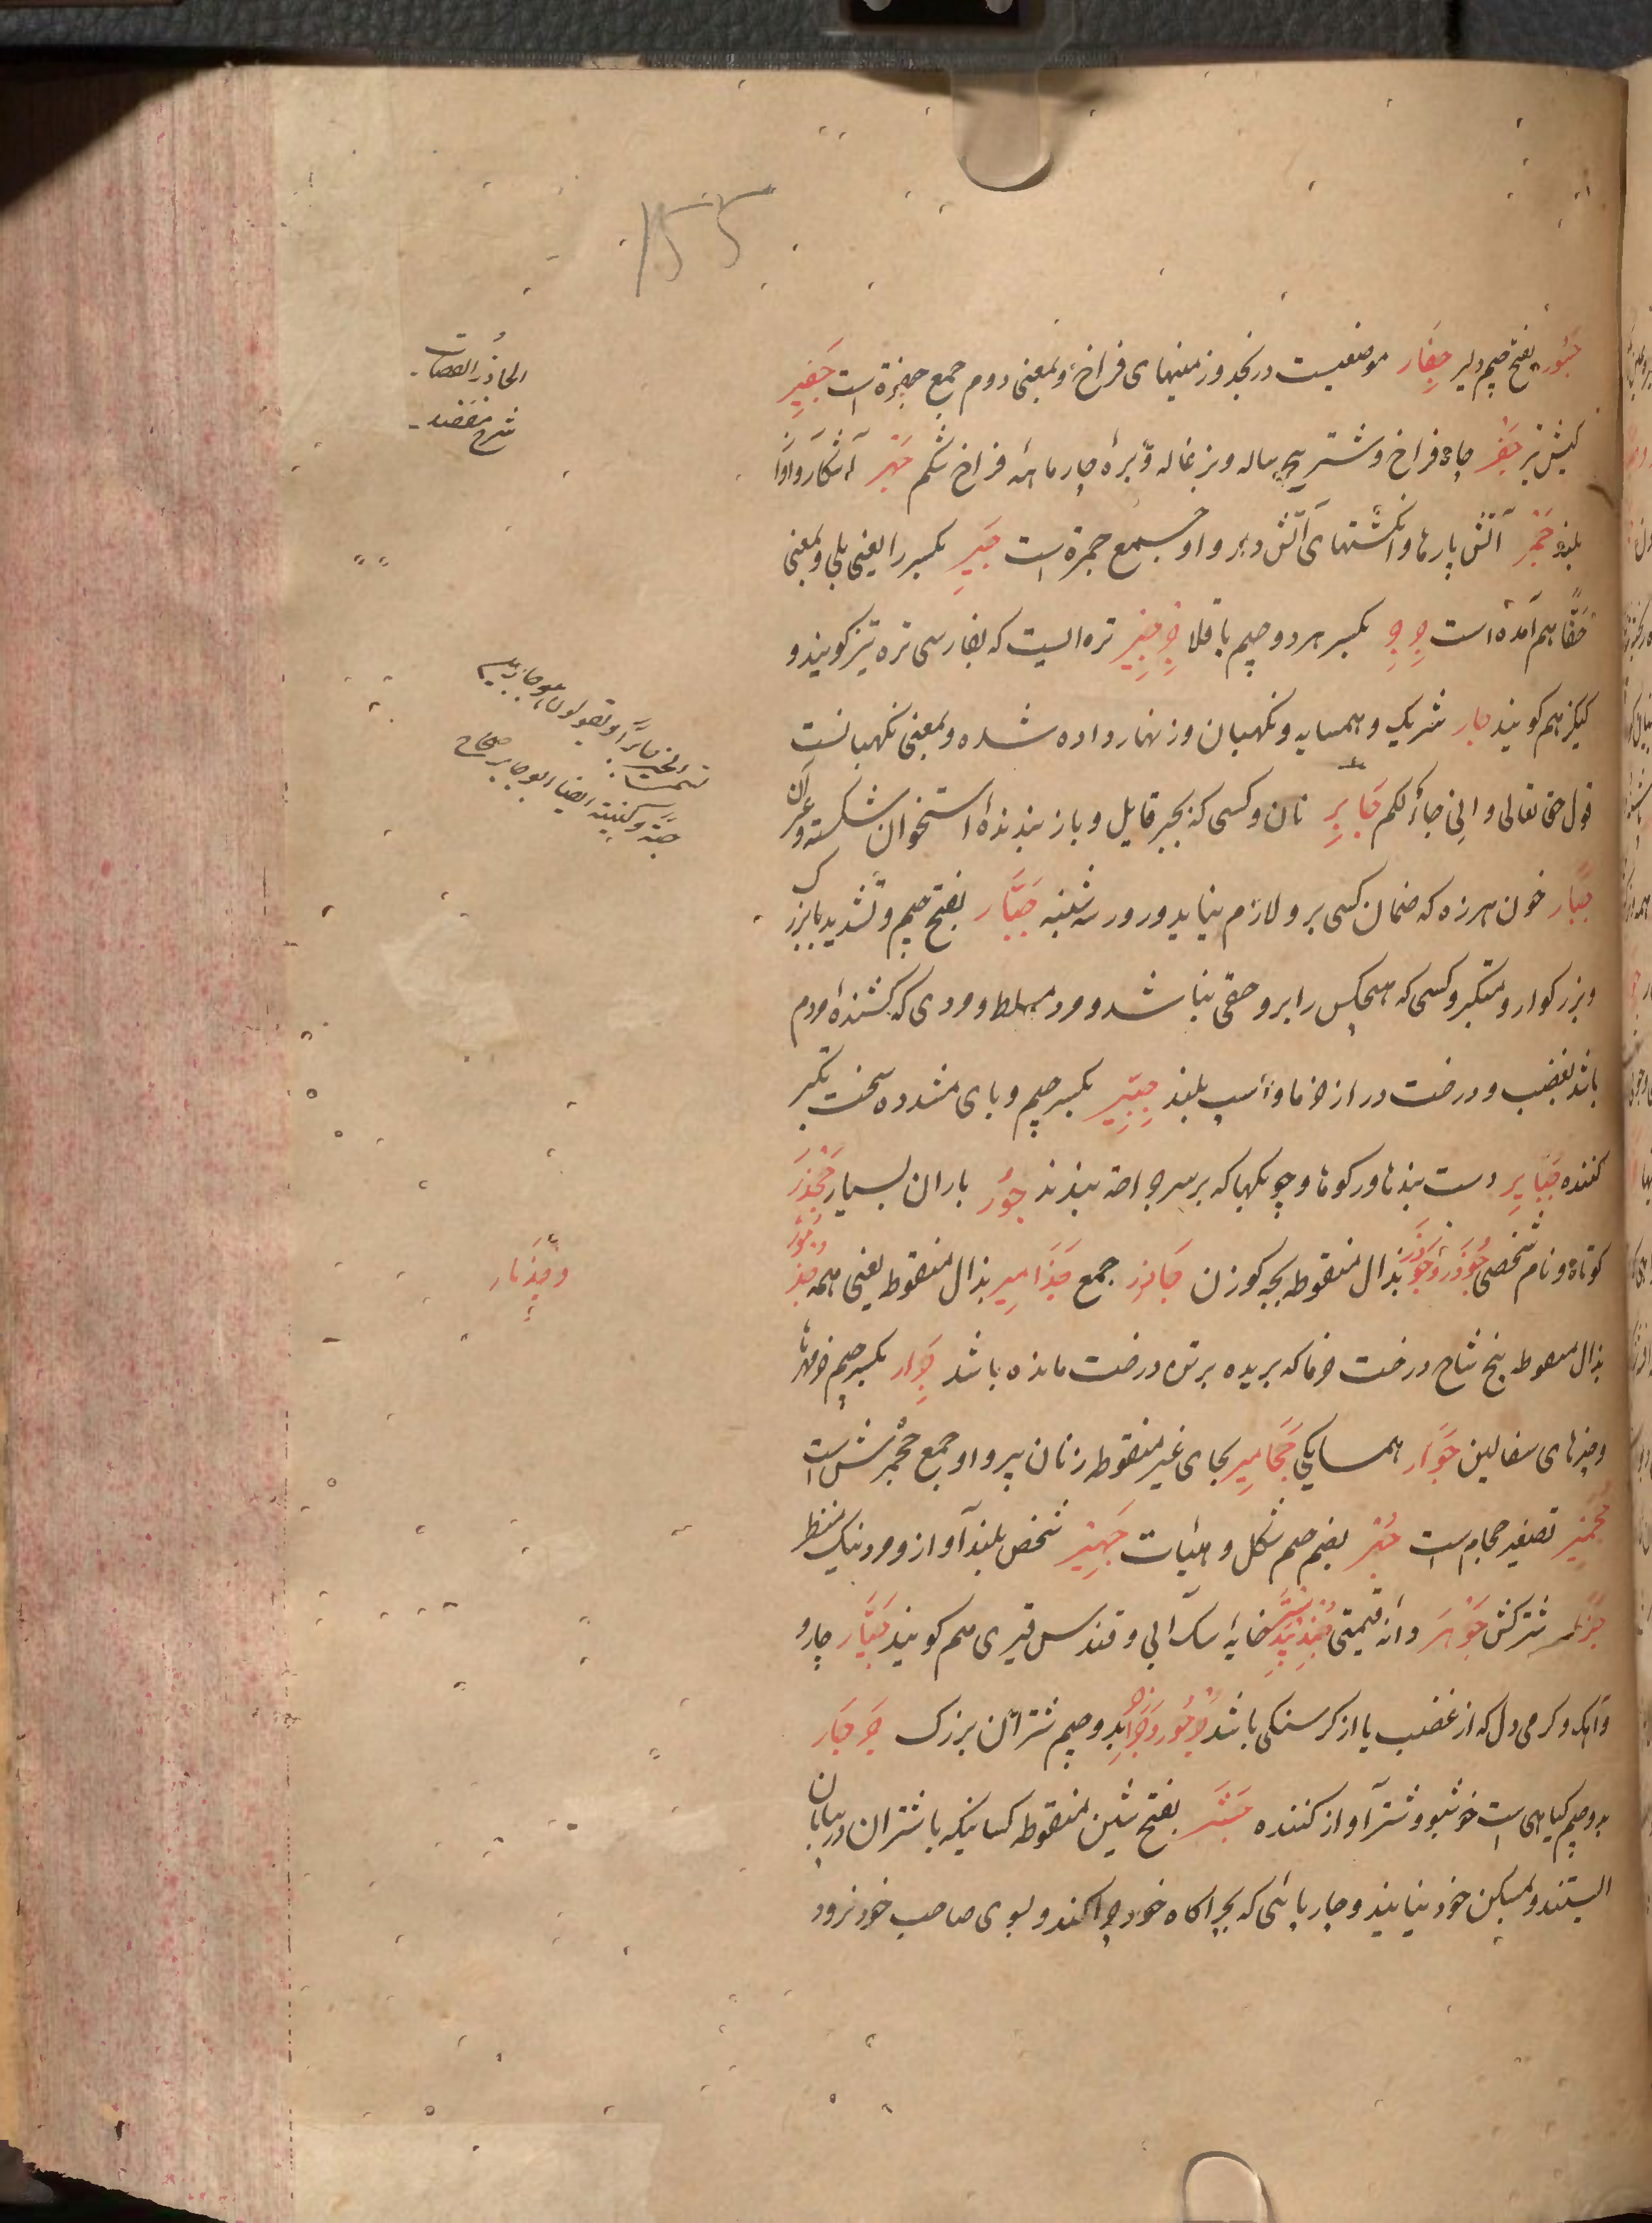 155
جسور بفتح جیم دلیر جفار موضعیست در نجد و زمینهای فراخ و بمعنی دوم جمع جفرة است جفیر
کیش تیر جفر چاه فراخ و شتر بچه ساله و بزغاله و برهٔ چار ماهه فراخ شکم جهر آشکار و آواز
بلند جمر آتش پارها و انگشتهای آتش دار و او جمع جمرة است جیر بکسر را یعنی بلی و بمعنی
حقّا هم آمده است جرجر بکسر هر دو جیم باقلا جرجیر تره ایست که بفارسی تره تیز کویند و
کیکیز هم کویند جار شریک و همسایه و نکهبان و زنهار داده شده و بمعنی نکهبانست
قول حق تعالی و انی جار لکم جابر نان و کسی که بجبر قایل و باز بندندهٔ استخوان شکسته و غیر آن
جبار خون هرزه که ضمان کسی برو لازم نیاید و روز سه شنبه جبّار بفتح جیم و تشدید با بزرک
و بزرکوار و متکبر و کسی که هیچکس را برو حقی نباشد و مرد مسلط و مردی که کشندهٔ مردم
باشد بغضب و درخت دراز خرما و اسپ بلند جبّیر بکسر جیم و بای مشدده سخت تکبر
کننده جبایر دست بندها و رکوها و چوبکها که بر سر جراحت بندند جؤر باران بسیار جحدر
کوتاه و نام شخصی جؤذر و جوذر بذال منقوطه بچه کوزن جآذر جمع جذامیر بذال منقوط یعنی همه جذمور
بذال منقوط بیخ شاخ درخت خرما که بریده بر تن درخت مانده باشد جرار بکسر جیم خمرها
و چیزهای سفالین جوار همسایکی جحامیر بحای غیر منقوطه زنان پیر و او جمع جحمرش است
جحیمر تصغیر جحامر است جهر بضم جیم شکل و هیأت جهیر شخص بلند آواز و مرد نیک منظر
جزر شتر کش جوهر دانه قیمتی جندبیدستر خایه سک آبی و قندس قیری هم کویند جیّار چارو
و آهک و کرمی دل که از غضب یا از کرسنکی باشد جرجور و جراجر بدو جیم شتران بزرک جرجار
بدو جیم کیاهی است خوشبو و شتر آواز کننده جشر بفتح شین منقوطه کسانیکه با شتران در بیابان
ایستند و بمسکن خود نیایند و چارپائی که بچراکاه خود چرا کند و بسوی صاحب خود نرود
وجذمار